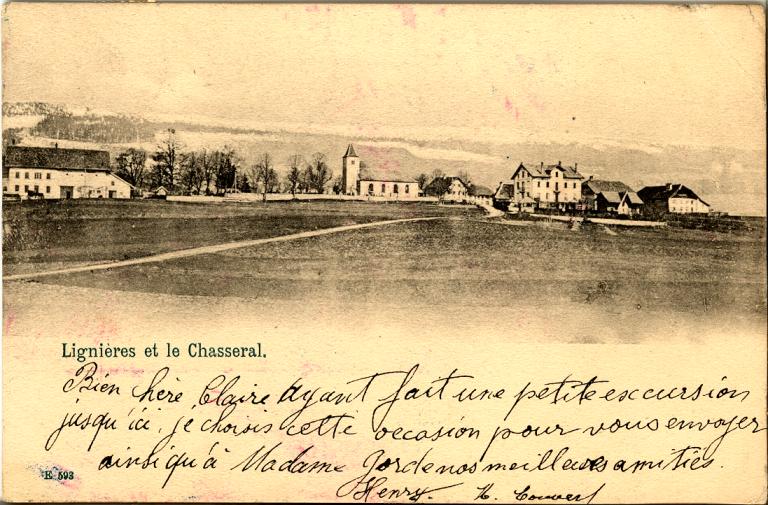 Lignières et le Chasseral.
Bien chère Claire Ayant fait une petite excursion
jusqu'ici, je choisis cette occasion pour vous envoyer
ainsi qu'à Madame nos meilleures amitiés.
Henry. H.
E 593